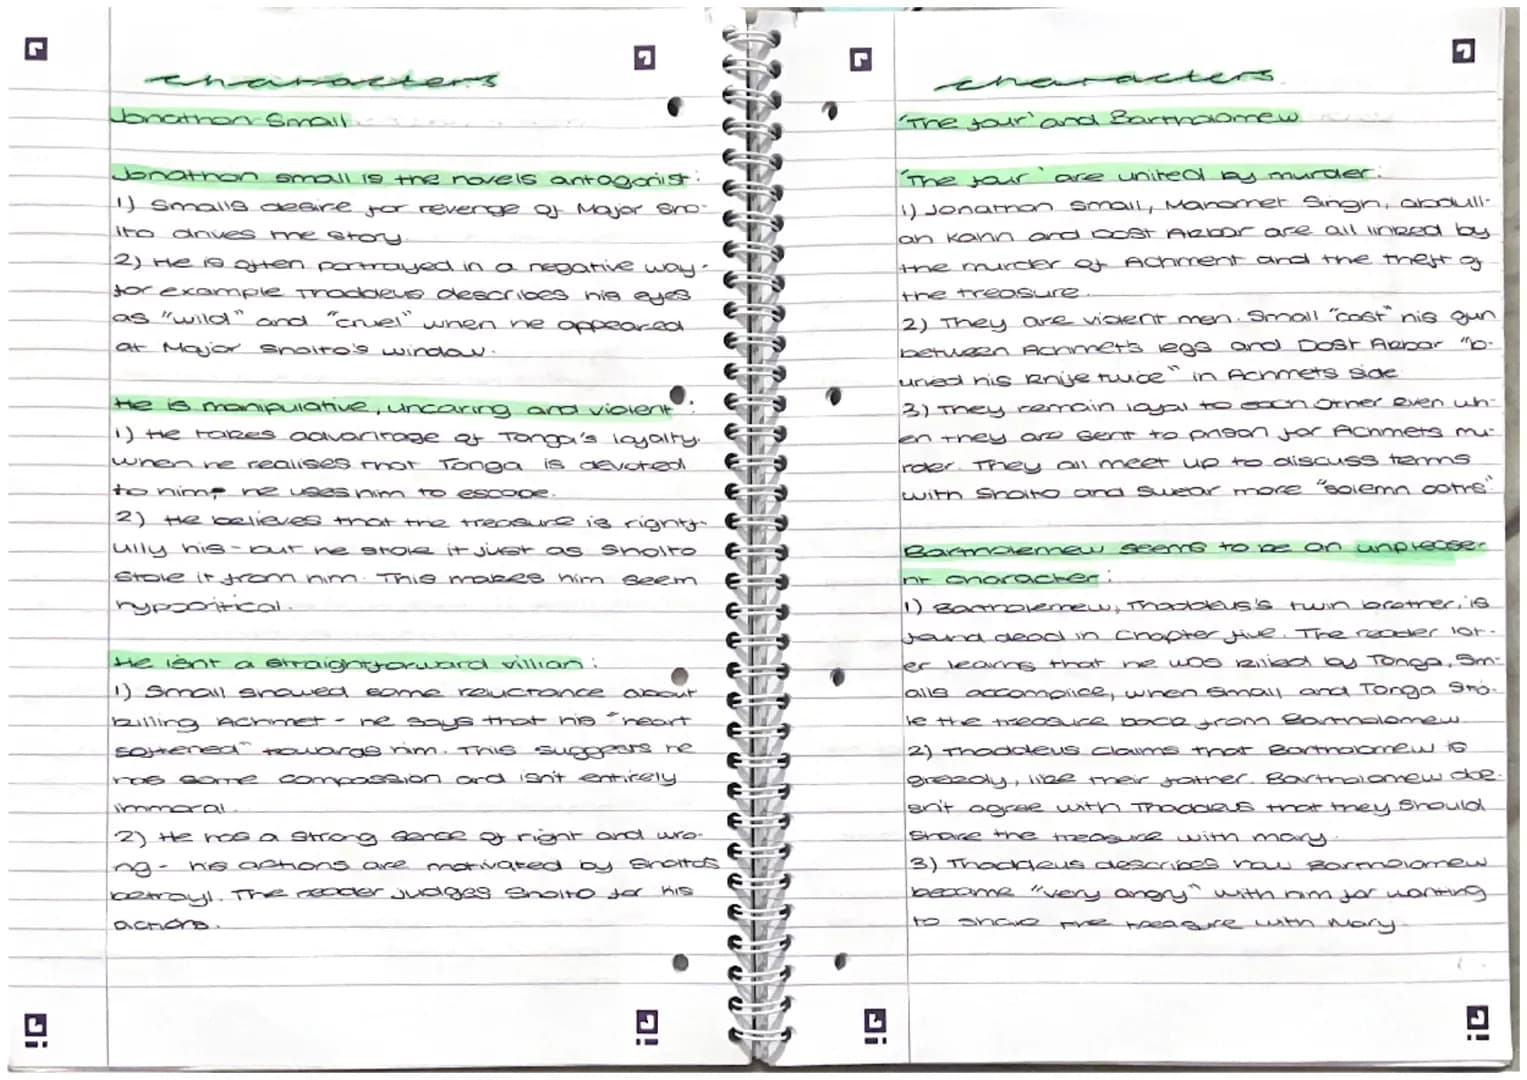 characters
Jonathon Small
Jonathon small is the novels antagonist:
1) Smalls desire for revenge of Major Sho-
lto drives the story.
2) He is often portrayed in a negative way-
for example Thaddeus describes his eyes
as "wild" and "cruel" when he appeared
at Major Sholto's window.
He is manipulative, uncaring and violent:
1) He takes advantage of Tonga's loyalty.
when he realises that Tonga is devoted
to him, he uses him to escape.
2) He believes that the treasure is rightf-
ully his - but he stole it just as Sholto
stole it from him. This makes him seem
hypocritical.
He isnt a straightforward villian:
1) Small showed some reluctance about
killing Achmet - he says that his "heart
softened" towards him. This suggests he
has some compassion and isn't entirely
immoral.
2) He has a strong sense of right and wro-
ng - his actions are motivated by Sholtos
betrayl. The reader judges Sholto for his
actions.
characters
'The four' and Bartholomew
'The four' are united by murder:
1) Jonathon Small, Mahomet Singh, abdull-
ah Kahn and Dost Akbar are all linked by
the murder of Achment and the theft of
the treasure.
2) They are violent men. Small "cast" his gun
between Achmet's legs and Dost Akbar "b-
uried his knife twice" in Achmets side
3) They remain loyal to each other even wh-
en they are sent to prison for Achmets mu-
rder. They all meet up to discuss terms
with Sholto and swear more "solemn oaths"
Bartholemew seems to be an unpleasa-
nt character:
1) Bartholemew, Thaddeus's twin brother, is
found dead in Chapter five. The reader lat-
er learns that he was killed by Tonga, Sm-
alls accomplice, when Small and Tonga sto-
le the treasure back from Bartholomew
2) Thaddeus claims that Bartholomew is
greedy, like their father. Bartholomew doe-
sn't agree with Thaddeus that they should
share the treasure with mary.
3) Thaddeus describes how Bartholomew
became "very angry" with him for wanting
to share the treasure with Mary.